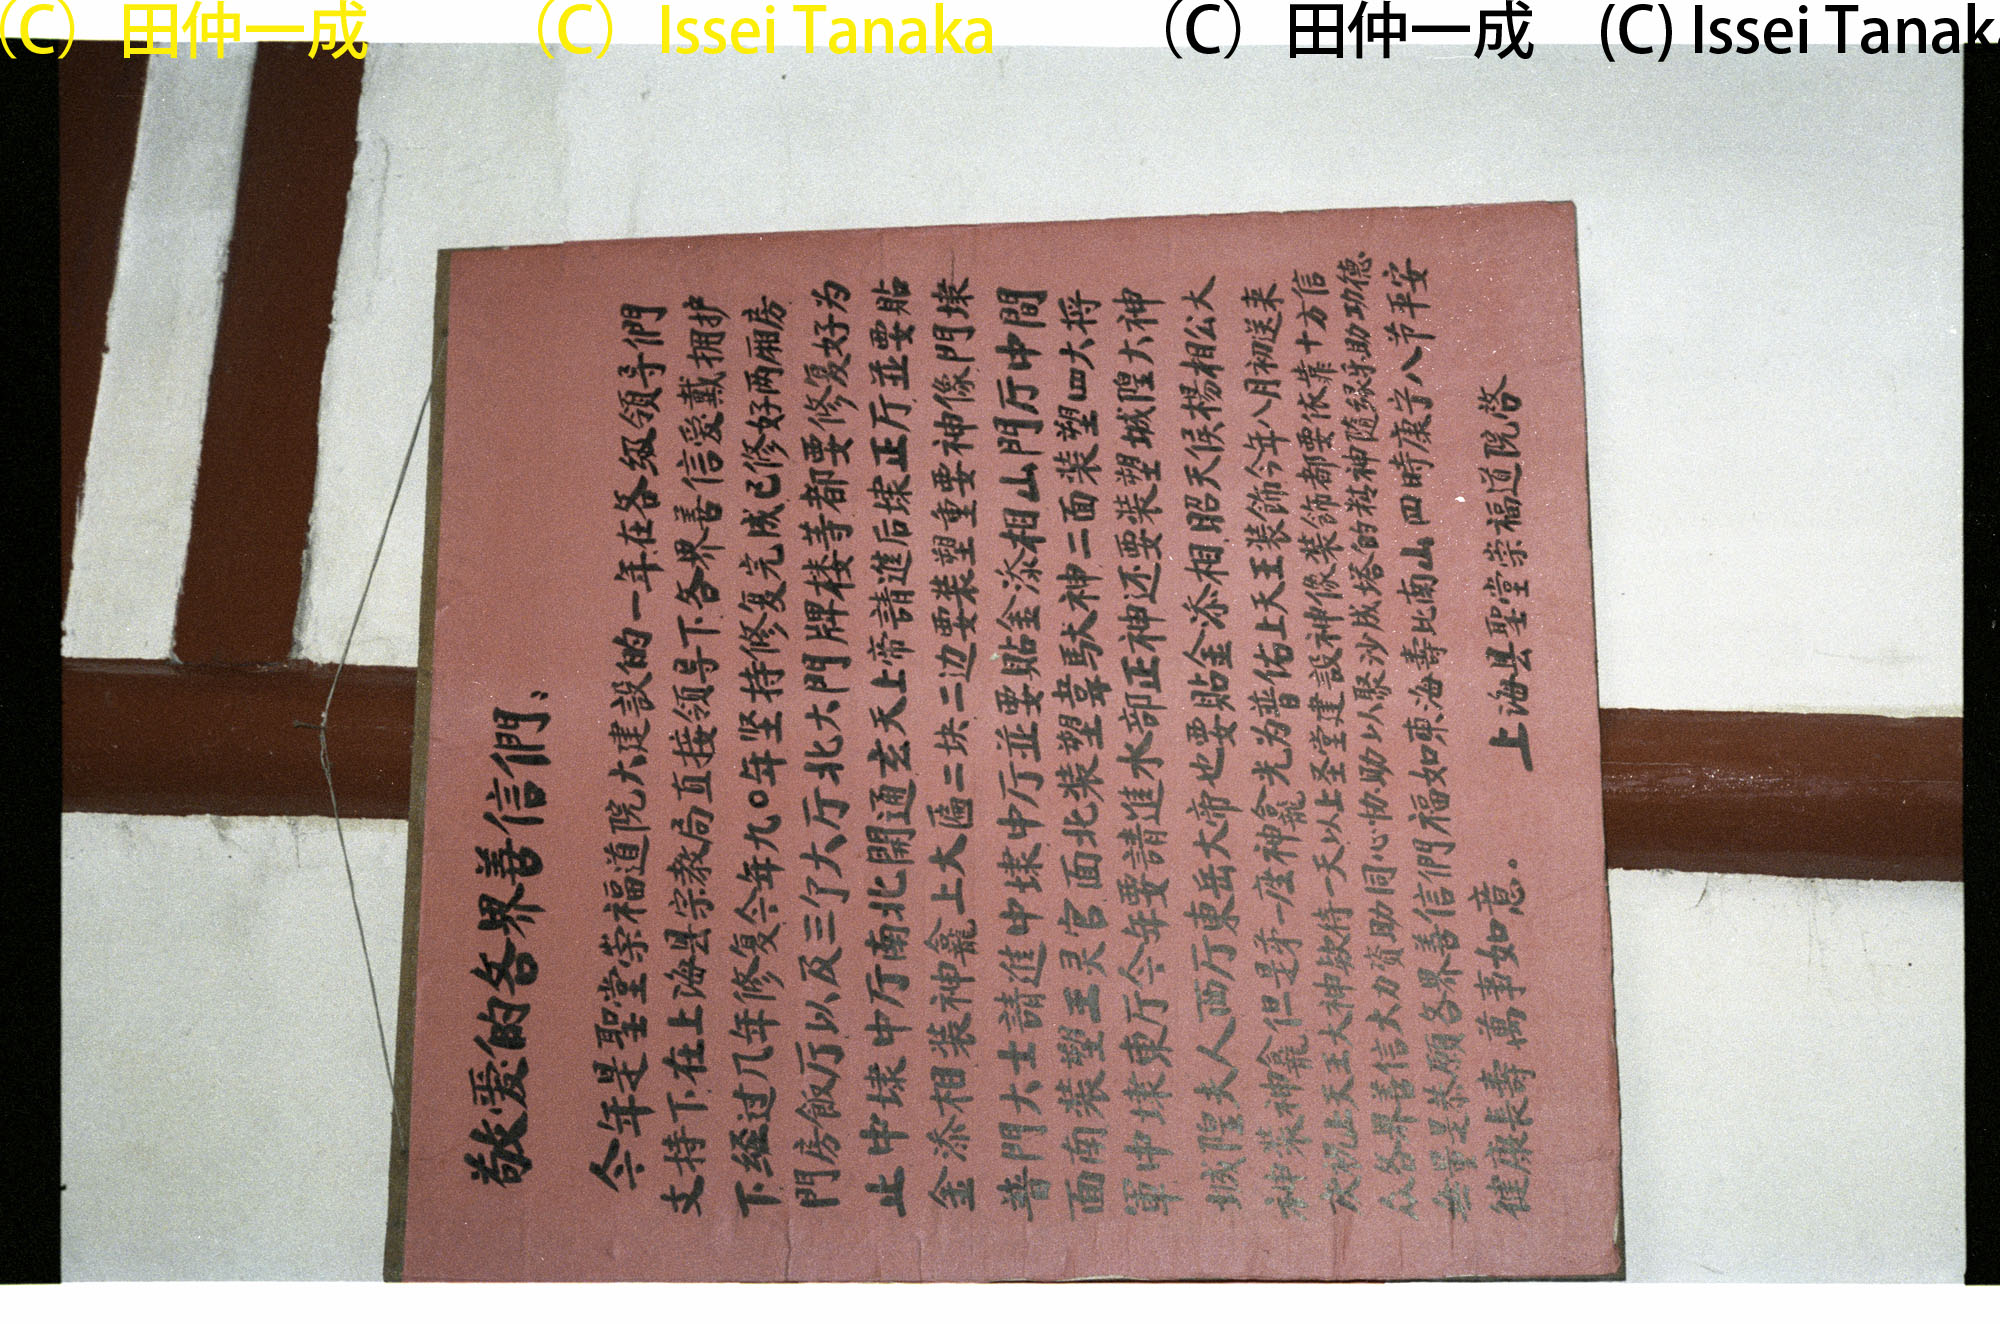 (C) 田仲一成 (C) Issei Tanaka (C) 田仲一成 (C) Issei Tanaka
敬爱的各界善信們、
今年是聖堂崇福道院大建設的一年在各級領导們
支持下在上海县宗教局直接領导下各界善信愛戴拥护
下经过几年修复今年九〇年坚持修复完成已修好两厢房
門房飯厅以及三了大厅北大門牌楼等都要修复好为
止中埭中厅南北開通玄天上帝請進后埭正厅並要貼
金添相装神龕上大匾二块二边要装塑重要神像門埭
普門大士請進中埭中厅並要貼金添相山門厅中間
面南装塑王灵官面北装塑韋馱神二面装塑四大将
軍中埭東厅今年要請進水部正神还要装塑城隍大神
城隍夫人西厅東岳大帝也要貼金添相昭天侯楊相公大
神装神龕但是第一座神龕光为普佑上天王装飾今年八月初送来
庆祝上天王大神欵待一天以上圣堂建設神像装飾都要依靠十方信
众各界善信大力資助同心协助以聚沙成塔的精神隨緣乐助功德
無量是恭願各界善信們福如東海壽比南山四時康宁八节平安
健康長壽萬事如意。
上海县聖堂崇福道院啓